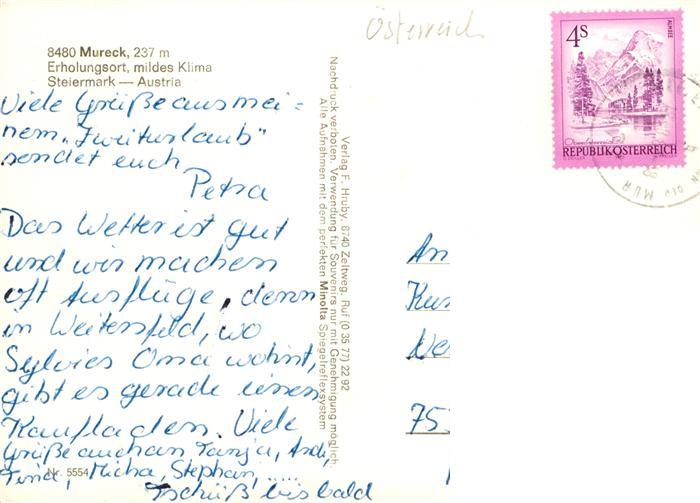 Österreich
8480 Mureck, 237 m
Erholungsort, mildes Klima
Steiermark — Austria
Viele Grüße aus mei=
nem „Zweiturlaub"
sendet euch
Petra
Das Wetter ist gut
und wir machen
oft Ausflüge, denn
in Weitersfeld, wo
Sylvies Oma wohnt,
gibt es gerade einen
Kaufladen. Viele
Grüße auch an Tanja,
Micha, Stephan, .....
Tschüß bis bald
Nr. 5554
Verlag F. Hruby, 8740 Zeltweg, Ruf (0 35 77) 22 92
Nachdruck verboten. Verwendung für Souvenirs nur mit Genehmigung möglich
Alle Aufnahmen mit dem perfekten Minolta Spiegelreflexsystem
4S
ALMSEE
REPUBLIK ÖSTERREICH
An
75